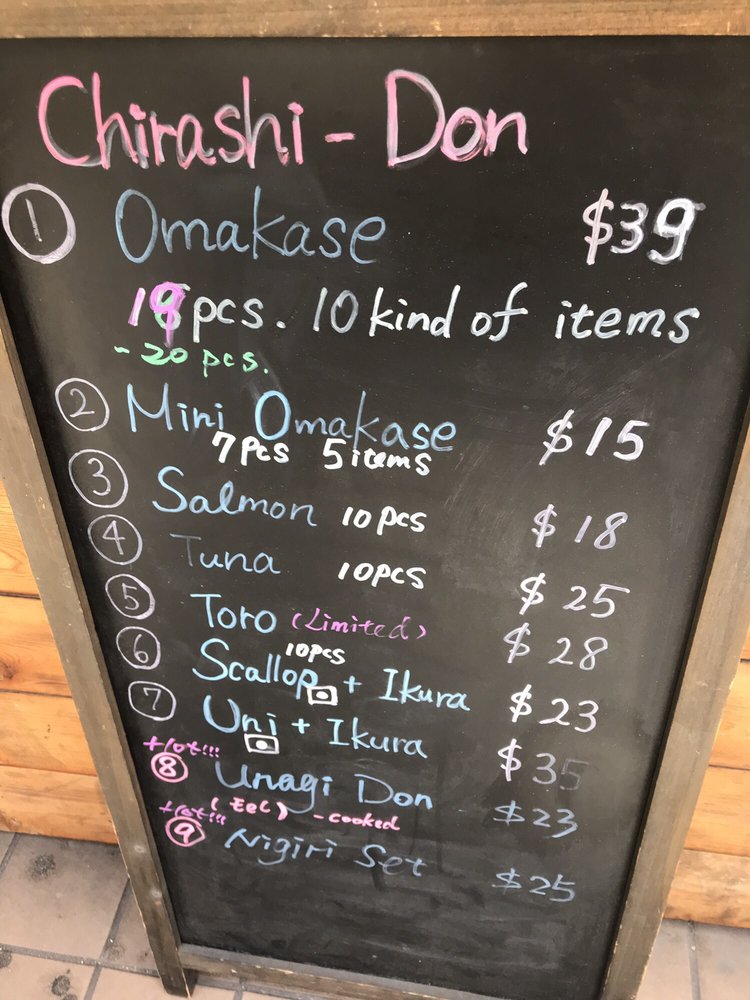 Chirashi - Don
① Omakase $39
19pcs. 10 kind of items
- 20 pcs.
② Mini Omakase $15
7pcs 5items
③ Salmon 10pcs $18
④ Tuna 10pcs $25
⑤ Toro (Limited) $28
10pcs
⑥ Scallop + Ikura $23
⑦ Uni + Ikura $35
Hot!!!
⑧ Unagi Don $23
(Eel) - cooked
Hot!!!
⑨ Nigiri Set $25